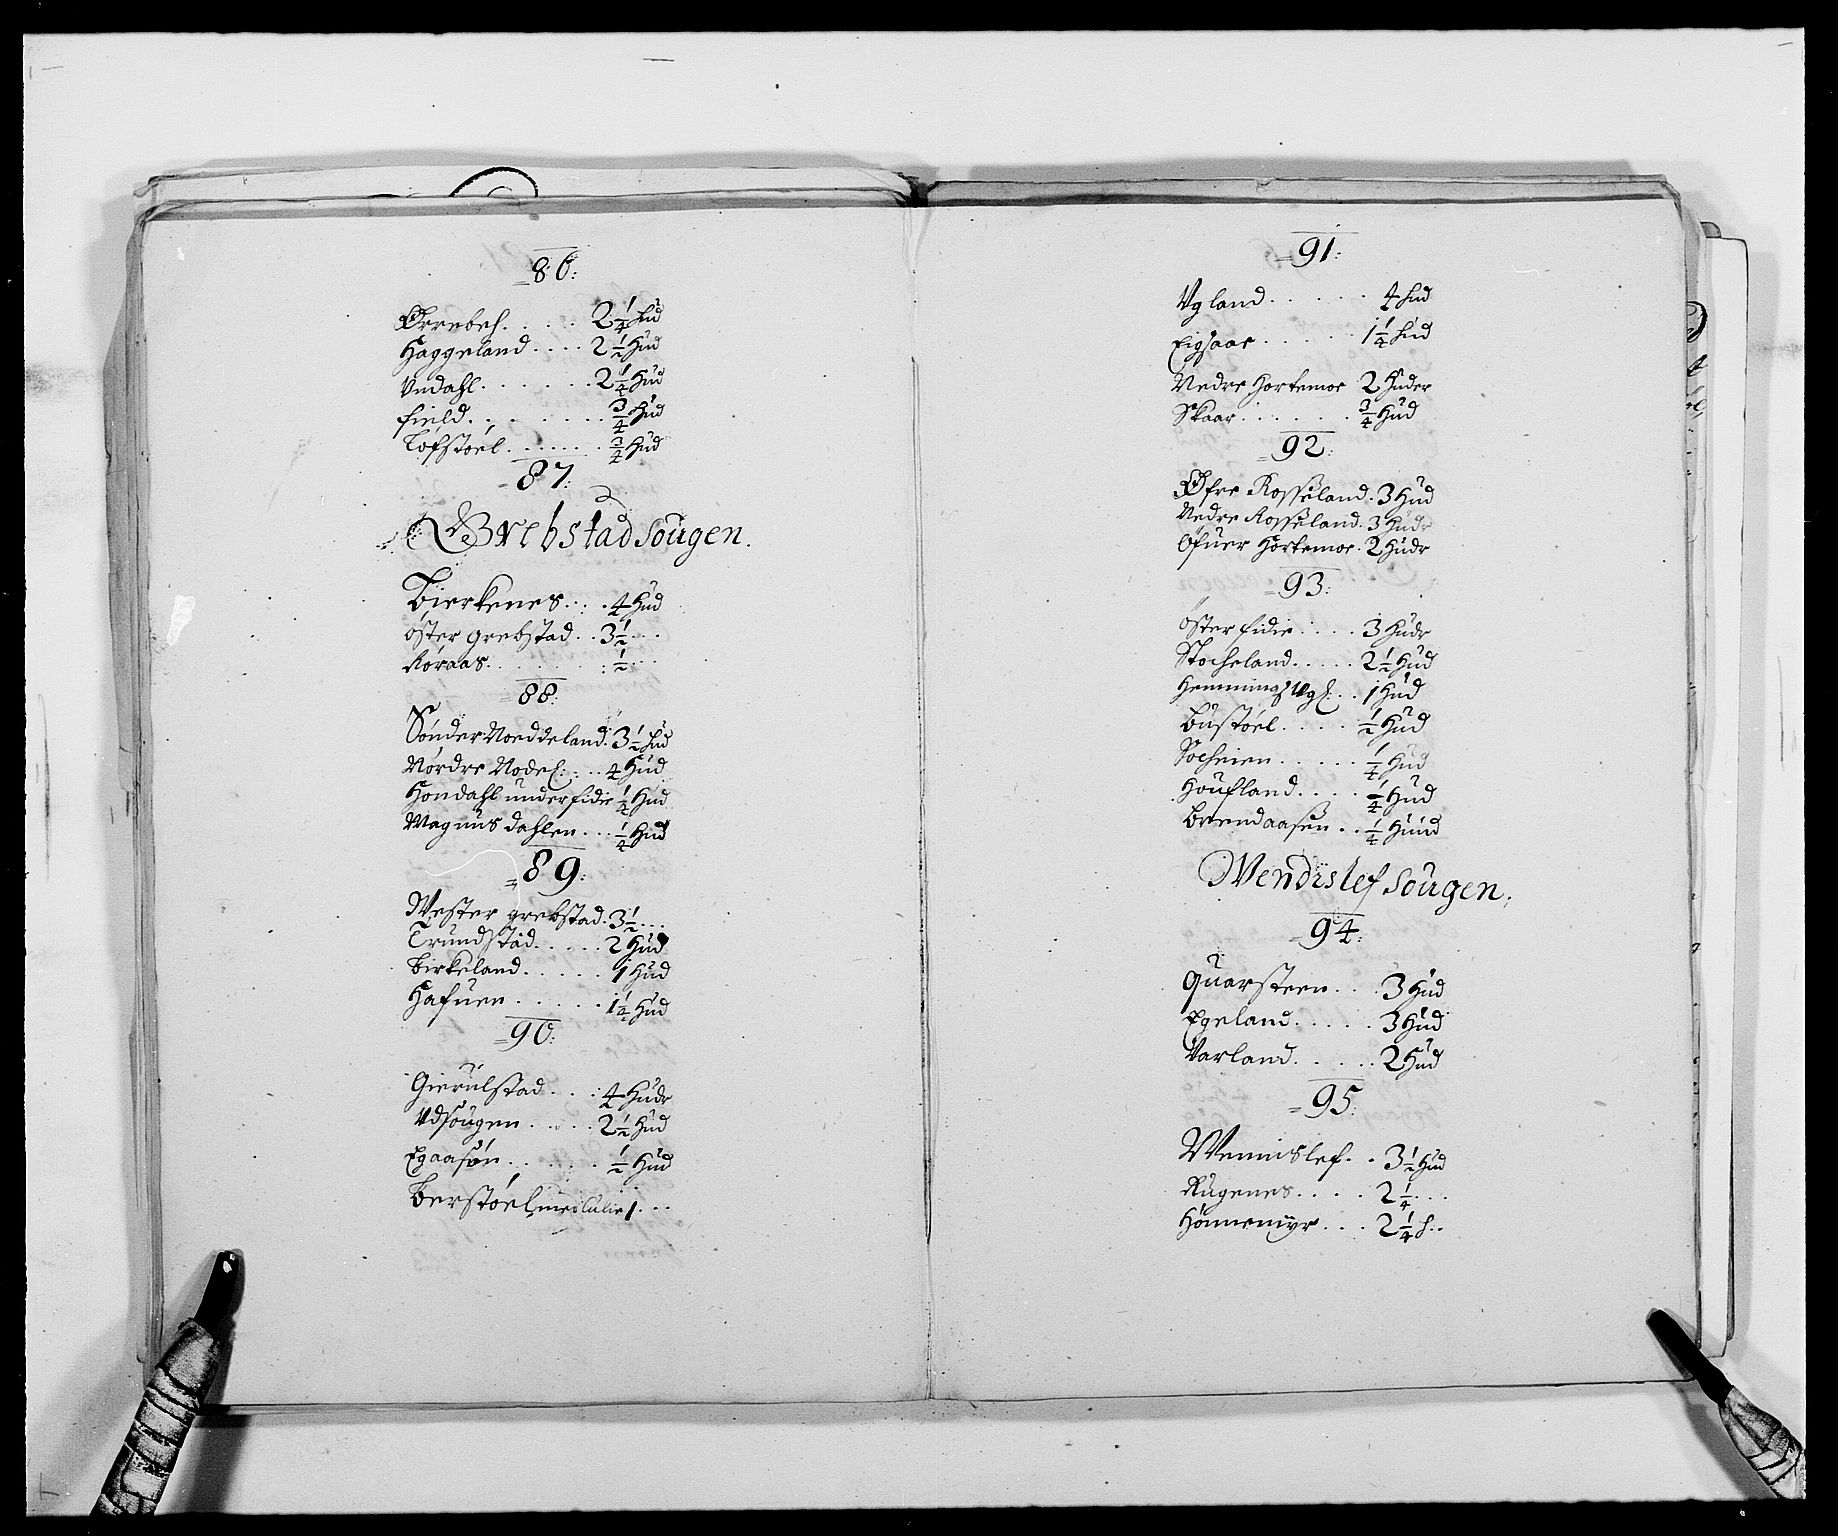 =86:
Ørrebech. . . . . 2 1/4 hud
Haggeland. . . . 2 1/2 Hud
Undahl. . . . . . . 2 1/4 Hud
field. . . . . . . . 3/4 Hud
Løfstøel. . . . . . . 3/4 Hud
87:
Grebstad Sougen.
Bierkenes. . . . 4 Hud
øster grebstad. . 3 1/2 . . .
Røraas. . . . . . . : 1/2 . . .
=88:
Sønder Noeddeland. 3 1/2 hud
Nørdre Nodel: . . . 4 Hud
Hondahl under fidie 1/4 Hud
Magnus dahlen. . . 1/4 Hud
=89:
Wester grebstad. 3 1/2 . . .
Trundstad. . . . . 2 Hud
Birkeland. . . . . 1 Hud
Hafuen. . . . . . 1 1/4 Hud
=90:
Gierulstad. . . . 4 Hudr
Udsougen. . . . . 2 1/2 Hud
Egaasøn. . . . . . 1/2 Hud
Berstøel, med 1. . .
=91:
Vgland. . . . . . 4 hud
Eigsaae. . . . . . 1 1/4 hud
Nedre Hortemoe 2 Huder
Skaar. . . . . . . 3/4 Hud
=92:
Øfre Rosseland. 3 Hud
Nedre Rosseland. 3 Hudr
Øfuer Hortemoe. 2 Hudr
=93:
Øster fidie. . . . 3 Hudr
Stocheland. . . . . 2 1/2 Hud
Hemmings Vgl: . . 1 Hud
Bustøel. . . . . 1/2 Hud
Socheien. . . . . . 1/4 Hud
Houfland. . . . . 1/4 Hud
Brendaasen. . . 1/4 Hud
Wendislef Sougen.
=94:
Quarsteen. . . . 3 Hud
Egeland. . . . . 3 Hud
Varland. . . . . . 2 Hud
=95:
Wennislef. . . 3 1/2 Hud
Rugenes. . . . . 2 1/4 . . .
Hønnemyr. . . . 2 1/4 h. .